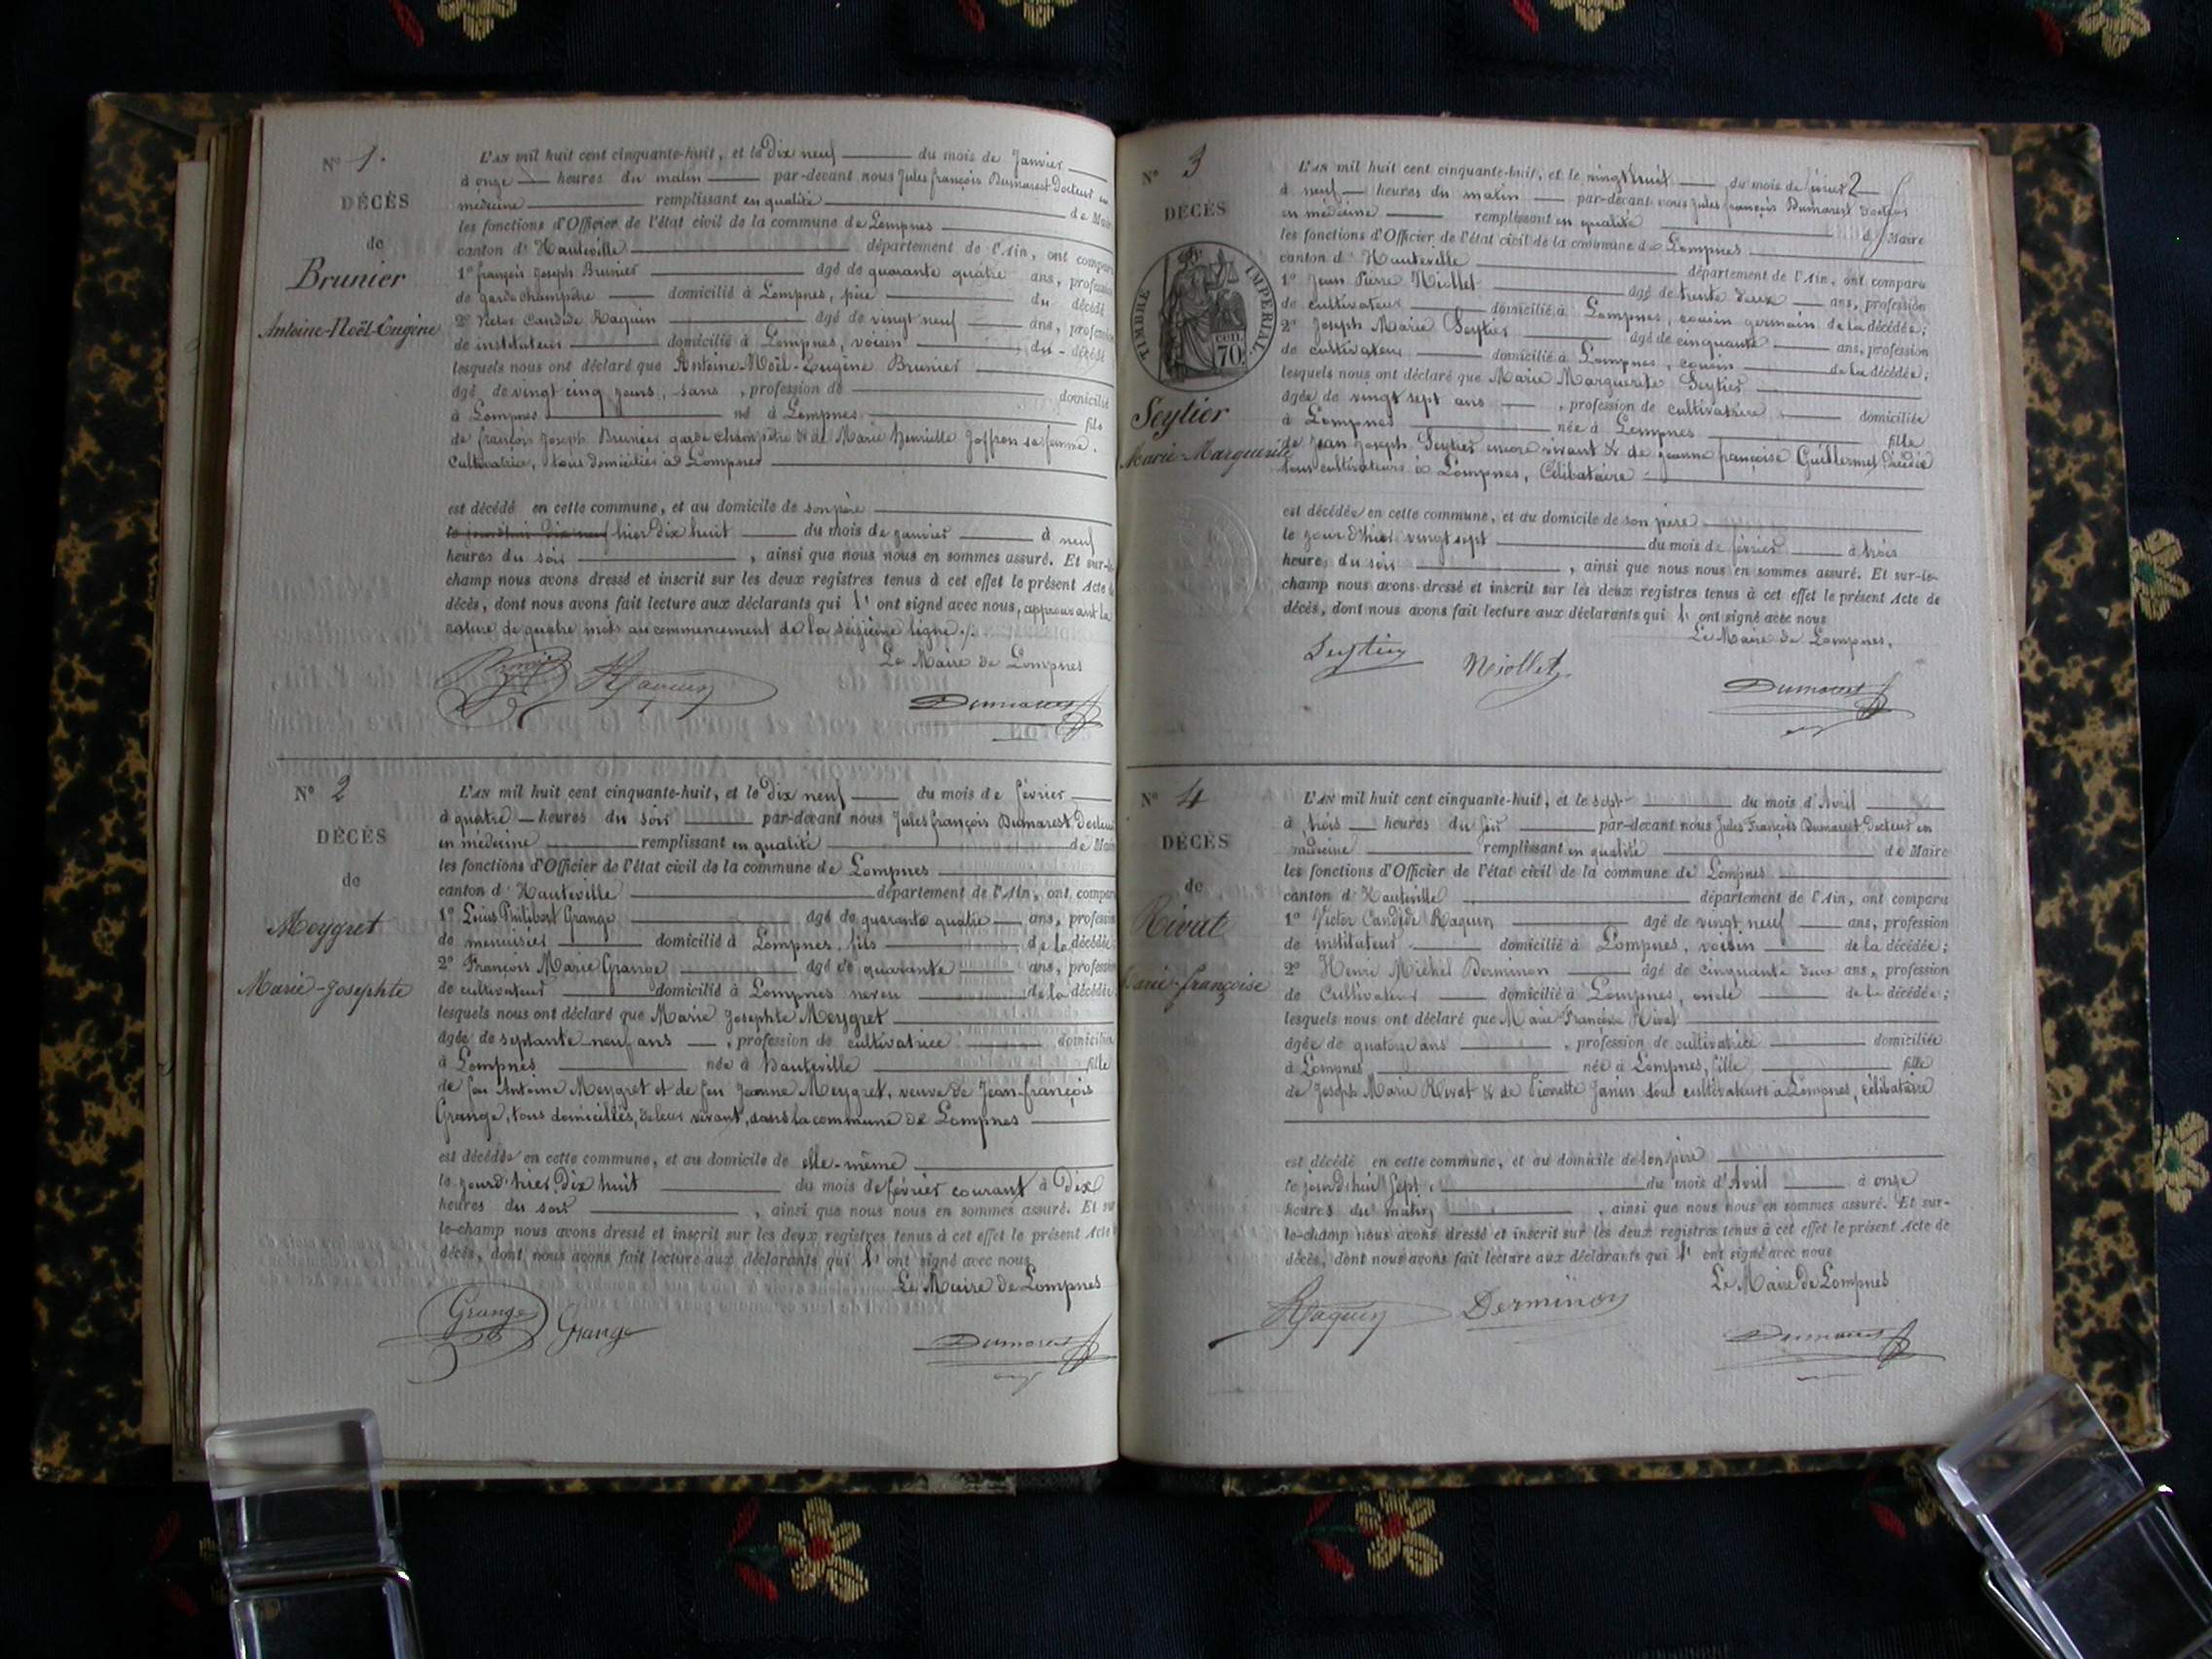 N° 1.
DÉCÈS
de
Brunier
Antoine-Noël-Eugène
L'AN mil huit cent cinquante-huit, et le Dix neuf du mois de Janvier
à onze heures du matin par-devant nous Jules françois Dumarest Docteur en
médecine remplissant en qualité de Maire
les fonctions d'Officier de l'état civil de la commune de Lompnes
canton d'Hauteville département de l'Ain, ont comparu
1° françois Joseph Brunier âgé de quarante quatre ans, profession
de garde champêtre domicilié à Lompnes, père du décédé
2° Victor Candide Raquin âgé de vingt neuf ans, profession
de instituteur domicilié à Lompnes, voisin du décédé
lesquels nous ont déclaré que Antoine Noël-Eugène Brunier
âgé de vingt cinq jours, sans, profession de domicilié
à Lompnes né à Lompnes fils
de françois Joseph Brunier garde champêtre & de Marie henriette Joffron sa femme.
Cultivatrice, tous domiciliés à Lompnes
est décédé en cette commune, et au domicile de son père
hier Dix huit du mois de janvier à neuf
heures du soir, ainsi que nous nous en sommes assuré. Et sur-le-
champ nous avons dressé et inscrit sur les deux registres tenus à cet effet le présent Acte de
décès, dont nous avons fait lecture aux déclarants qui l' ont signé avec nous, approuvant la
rature de quatre mots au commencement de la seizième ligne./.
Le Maire de Lompnes
Raquin
Dumarest
N° 2
DÉCÈS
de
Meygret
Marie-Josephte
L'AN mil huit cent cinquante-huit, et le Dix neuf du mois de février
à quatre heures du soir par-devant nous Jules françois Dumarest Docteur
en médecine remplissant en qualité de Maire
les fonctions d'Officier de l'état civil de la commune de Lompnes
canton d'Hauteville département de l'Ain, ont comparu
1° Louis Philibert Grange âgé de quarante quatre ans, profession
de menuisier domicilié à Lompnes, fils de la décédée
2° François Marie Grange âgé de quarante ans, profession
de cultivateur domicilié à Lompnes neveu de la décédée
lesquels nous ont déclaré que Marie Josephte Meygret
âgée de septante-neuf ans, profession de cultivatrice domiciliée
à Lompnes née à Hauteville fille
de feu Antoine Meygret et de feu Jeanne Meygret, veuve de Jean-françois
Grange, tous domiciliés, de leur vivant, dans la commune de Lompnes
est décédée en cette commune, et au domicile de elle-même
le jour d'hier, Dix huit du mois de février courant à Dix
heures du soir, ainsi que nous nous en sommes assuré. Et sur
le-champ nous avons dressé et inscrit sur les deux registres tenus à cet effet le présent Acte
décès, dont nous avons fait lecture aux déclarants qui l' ont signé avec nous
Le Maire de Lompnes
Grange Grange
Dumarest
N° 3
DÉCÈS
TIMBRE IMPÉRIAL.
cen.
70
Seytier
Marie-Marguerite
L'AN mil huit cent cinquante-huit, et le vingt huit du mois de février 2
à neuf heures du matin par-devant nous Jules françois Dumarest Docteur
en médecine remplissant en qualité de Maire
les fonctions d'Officier de l'état civil de la commune de Lompnes
canton d'Hauteville département de l'Ain, ont comparu
1° Jean Pierre Niollet âgé de trente deux ans, profession
de cultivateur domicilié à Lompnes, cousin germain de la décédée;
2° Joseph Marie Seytier âgé de cinquante ans, profession
de cultivateur domicilié à Lompnes, cousin de la décédée;
lesquels nous ont déclaré que Marie Marguerite Seytier
âgée de vingt sept ans, profession de cultivatrice domiciliée
à Lompnes née à Lompnes fille
de Jean Joseph Seytier encore vivant & de Jeanne françoise Guillermet décédée
tous cultivateurs à Lompnes, Célibataire
est décédée en cette commune, et au domicile de son père
le jour d'hier vingt sept du mois de février à trois
heures du soir, ainsi que nous nous en sommes assuré. Et sur-le-
champ nous avons dressé et inscrit sur les deux registres tenus à cet effet le présent Acte de
décès, dont nous avons fait lecture aux déclarants qui l' ont signé avec nous
Le Maire de Lompnes.
Seytier Niollet
Dumarest
N° 4
DÉCÈS
de
Rivat
Marie-françoise
L'AN mil huit cent cinquante-huit, et le sept du mois d'Avril
à trois heures du soir par-devant nous Jules François Dumarest Docteur en
médecine remplissant en qualité de Maire
les fonctions d'Officier de l'état civil de la commune de Lompnes
canton d'Hauteville département de l'Ain, ont comparu
1° Victor Candide Raquin âgé de vingt neuf ans, profession
de instituteur domicilié à Lompnes, voisin de la décédée;
2° Henri Michel Derminon âgé de cinquante deux ans, profession
de Cultivateur domicilié à Lompnes, oncle de la décédée;
lesquels nous ont déclaré que Marie Françoise Rivat
âgée de quatorze ans, profession de cultivatrice domiciliée
à Lompnes née à Lompnes, fille fille
de Joseph Marie Rivat & de Pionette Janin tous cultivateurs à Lompnes, célibataire
est décédé en cette commune, et au domicile de son père
le jourd'hui sept du mois d'Avril à onze
heures du matin, ainsi que nous nous en sommes assuré. Et sur-
le-champ nous avons dressé et inscrit sur les deux registres tenus à cet effet le présent Acte de
décès, dont nous avons fait lecture aux déclarants qui l' ont signé avec nous
Le Maire de Lompnes
Raquin Derminon
Dumarest